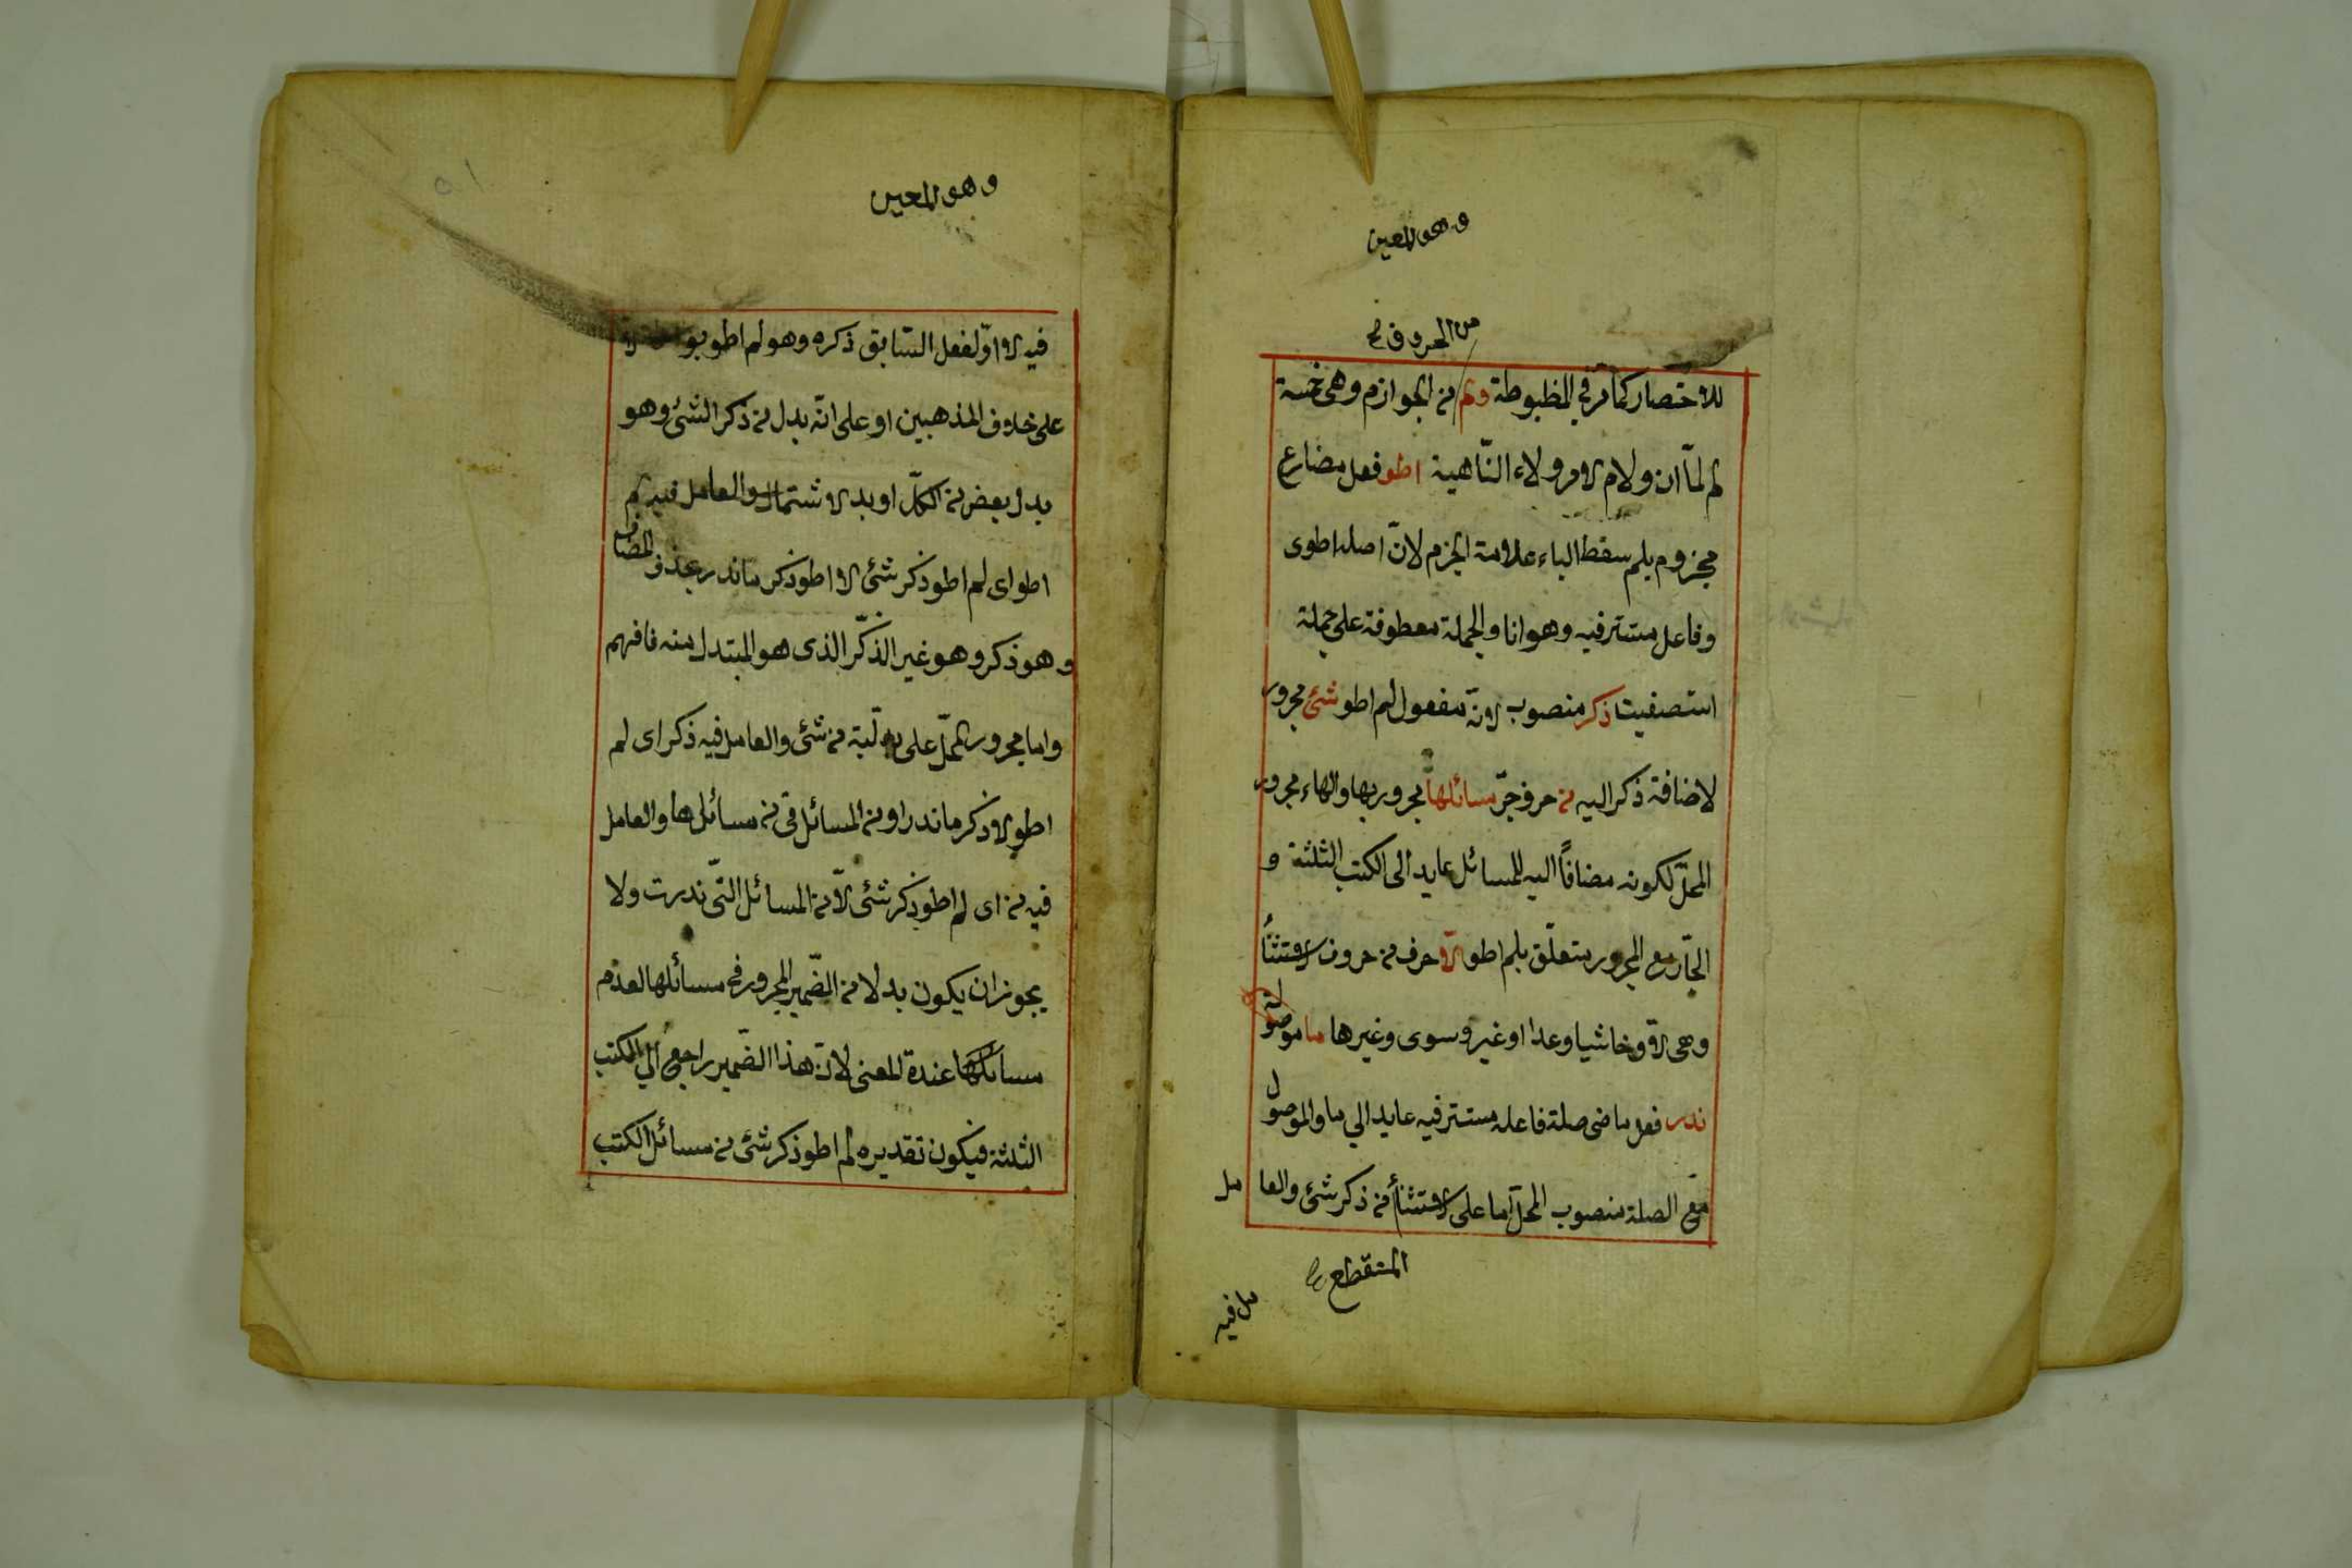 وهو المعين
من الحروف
للاختصار كما مر في المظبوطة ولم من الجوازم وهي خمسة
لم لمّا ان ولام الامر ولاء النّاهية اطو فعل مضارع
مجزوم بلم سقط الياء علامة الجزم لانّ اصله اطوى
وفاعل مستتر فيه وهو انا والجملة معطوفة على جملة
استصفيت ذكر منصوب لانّه مفعول لم اطو شئ مجرور
لاضافة ذكر اليه من حروف جرّ مسائلها مجرور بها والهاء مجرور
المحلّ لكونه مضافاً اليه للمسائل عايد الى الكتب الثلثة و
الجّار مع المجرور متعلّق بلم اطو الّا حرف من حروف الاستثناء
وهي الّا وخاشيا وعدا او غير وسوى وغيرها ما موصولة
ندر فعل ماضى صلة فاعله مستتر فيه عايد الي ما والموصول
مع الصلة منصوب المحلّ اما على الاستثنأ من ذكر شئ والعا مل
المنقطع
مل فيه
وهو المعين
٥١
فيه الا او لفعل السّابق ذكره وهو لم اطو
على خلاف المذهبين او على انّه بدل من ذكر الشئ وهو
بدل بعض من الكلّ او بدل الاشتمال والعامل فيه لم
اطو اى لم اطو ذكر شئ الا اطو ذكر ما ندر بحذف المضاف
وهو ذكر وهو غير الذكّر الذى هو المبتدل منه فافهم
واما مجرور المحلّ على البدليّة من شئ والعامل فيه ذكر اى لم
اطو الا ذكر ما ندر او من المسائل في من مسائلها والعامل
فيه من اى لم اطو ذكر شئ الّا من المسائل التّى ندرت ولا
يجوز ان يكون بدلا من الضّمير المجرور في مسائلها لعدم
مسائلها عندة المعنى لانّ هذا الضّمير راجع الي الكتب
الثلثة فيكون تقديره لم اطو ذكر شئ من مسائل الكتب